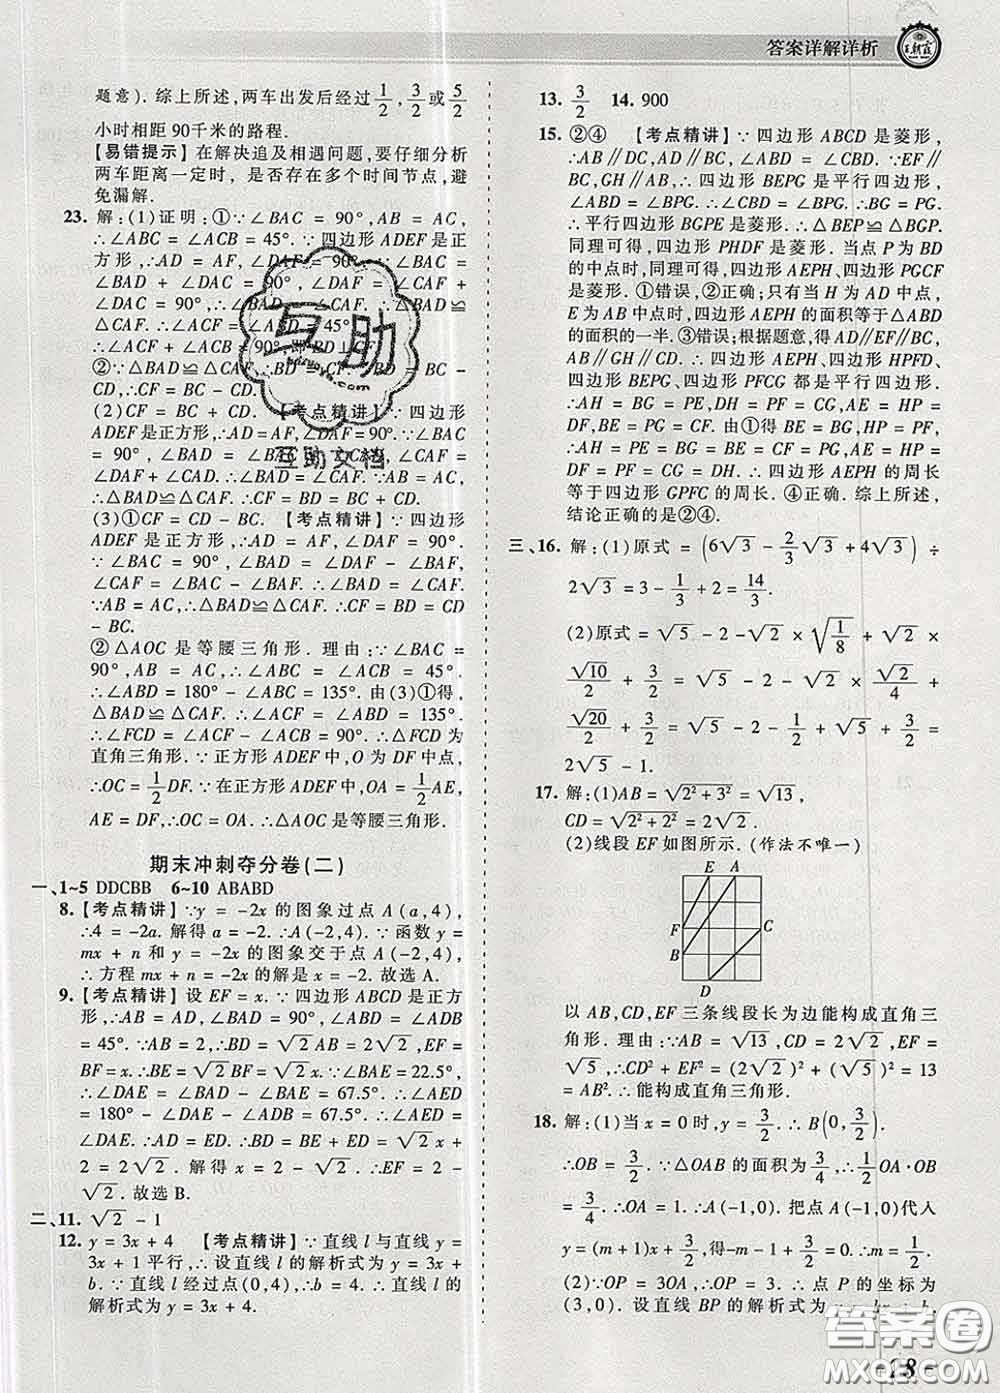 答案详解详析
王朝霞
题意). 综上所述,两车出发后经过1/2,3/2,或5/2
小时相距 90千米的路程.
【易错提示】在解决追及相遇问题,要仔细分析
两车距离一定时,是否存在多个时间节点,避
免漏解.
23. 解:(1)证明:①∵∠BAC = 90°,AB = AC,
∴∠ABC = ∠ACB = 45°. ∵ 四边形 ADEF 是正
方形,∴AD = AF,∠DAF = 90°. ∵∠BAC =
∠BAD + ∠DAC = 90°,∠DAF = ∠CAF +
∠DAC = 90°,∴∠BAD = ∠CAF. ∴△BAD≌
△CAF. ∴∠ACF = ∠ABD = 45°. ∴∠ACF +
∠ACB = 90°,即BD⊥CF.
②∵△BAD≌△CAF,∴BD = CF. ∵BD =
BC - CD,∴CF = BC - CD.
(2)CF = BC + CD. 【考点精讲】∵ 四边形
ADEF 是正方形,∴AD = AF,∠DAF = 90°. ∵
∠BAC = 90°,∴∠BAD = ∠CAF. ∵AB = AC,
∴△BAD≌△CAF. ∴CF = BD = BC + CD.
(3)①CF = CD - BC. 【考点精讲】∵ 四边形
ADEF 是正方形,∴AD = AF,∠DAF = 90°.
∵∠BAC = 90°,∴∠BAD = ∠DAF - ∠BAF,
∠CAF = ∠BAC - ∠BAF. ∴∠BAD = ∠CAF.
∵AB = AC,∴△BAD≌△CAF. ∴CF = BD = CD
- BC.
②△AOC 是等腰三角形. 理由:∵∠BAC =
90°,AB = AC,∴∠ABC = ∠ACB = 45°.
∴∠ABD = 180° - ∠ABC = 135°. 由(3)①得,
△BAD≌△CAF. ∴∠ACF = ∠ABD = 135°.
∴∠FCD = ∠ACF - ∠ACB = 90°. ∴△FCD 为
直角三角形. ∵正方形 ADEF 中,O 为 DF 中点,
∴OC = 1/2 DF. ∵在正方形 ADEF 中,OA = 1/2 AE,
AE = DF,∴OC = OA. ∴△AOC 是等腰三角形.
期末冲刺夺分卷(二)
一、1~5 DDCBB 6~10 ABABD
8. 【考点精讲】∵y = -2x 的图象过点 A(a,4),
∴4 = -2a. 解得 a = -2. ∴A(-2,4). ∵ 函数 y =
mx + n 和 y = -2x 的图象交于点 A(-2,4),
∴ 方程 mx + n = -2x 的解是 x = -2. 故选 A.
9. 【考点精讲】设 EF = x. ∵ 四边形 ABCD 是正方
形,∴AB = AD,∠BAD = 90°,∠ABD = ∠ADB
= 45°. ∵AB = 2,∴BD = √2 AB = 2√2,EF =
BF = x. ∴BE = √2 BF = √2 x. ∵∠BAE = 22.5°,
∴∠DAE = ∠BAD - ∠BAE = 67.5°. ∴∠AED
= 180° - ∠DAE - ∠ADB = 67.5°. ∴∠AED =
∠DAE. ∴AD = ED. ∴BD = BE + ED = √2 x +
2 = 2√2. 解得 x = 2 - √2. ∴EF = 2 -
√2. 故选 B.
二、11. √2 - 1
12. y = 3x + 4 【考点精讲】∵ 直线 l 与直线 y =
3x + 1 平行,∴ 设直线 l 的解析式为 y = 3x +
b. ∵ 直线 l 经过点(0,4),∴b = 4. ∴ 直线 l 的
解析式为 y = 3x + 4.
13. 3/2 14. 900
15. ②④ 【考点精讲】∵ 四边形 ABCD 是菱形,
∴AB∥DC,AD∥BC,∠ABD = ∠CBD. ∵EF∥
BC,∴EF∥BG. ∴ 四边形 BEPG 是平行四边形,
∠ABD = ∠GPB,∠CBD = ∠BPG. ∴BG = PG,
∴ 平行四边形 BGPE 是菱形. ∴△BEP≌△BGP.
同理可得,四边形 PHDF 是菱形. 当点 P 为 BD
的中点时,同理可得,四边形 AEPH、四边形 PGCF
是菱形. ①错误,②正确;只有当 H 为 AD 中点,
E 为 AB 中点时,四边形 AEPH 的面积等于△ABD
的面积的一半. ③错误;根据题意,得 AD∥EF∥BC,
AB∥GH∥CD. ∴ 四边形 AEPH、四边形 HPFD、
四边形 BEPG、四边形 PFCG 都是平行四边形.
∴AH = BG = PE,DH = PF = CG,AE = HP =
DF,BE = PG = CF. 由①得 AH = PE,AE = HP =
DF,BE = BG = PG = CF,HP = PF = DF = HD.
∴AE = PF = CG = DH. ∴ 四边形 AEPH 的周长
等于四边形 GPFC 的周长. ④正确. 综上所述,
结论正确的是②④.
三、16. 解:(1)原式 = (6√3 - 2/3 √3 + 4√3) ÷
2√3 = 3 - 1/3 + 2 = 14/3.
(2)原式 = √5 - 2 - 2 × √(1/8) + √2 ×
√10/2 + 3/2 = √5 - 2 - 2 × √2/4 +
√20/2 + 3/2 = √5 - 2 - 1/2 + √5 + 3/2 =
2√5 - 1.
17. 解:(1)AB = √(2² + 3²) = √13,
CD = √(2² + 2²) = 2√2.
(2)线段 EF 如图所示. (作法不唯一)
E A
F C
B
D
以 AB,CD,EF 三条线段长为边能构成直角三
角形. 理由:∵AB = √13,CD = 2√2,EF =
√5,∴CD² + EF² = (2√2)² + (√5)² = 13
= AB². ∴能构成直角三角形.
18. 解:(1)当 x = 0 时,y = 3/2. ∴B(0,3/2).
∴OB = 3/2. ∵△OAB 的面积为 3/4,∴1/2 OA·OB =
3/4. ∴OA = 1. ∴A(-1,0). 把点 A(-1,0)代入
y = (m+1)x + 3/2,得 -m-1 + 3/2 = 0. ∴m = 1/2.
(2)∵OP = 3OA,∴OP = 3. ∴点 P 的坐标为
(3,0). 设直线 BP 的解析式为
互助
互助文档
答案圈
MXQE.COM